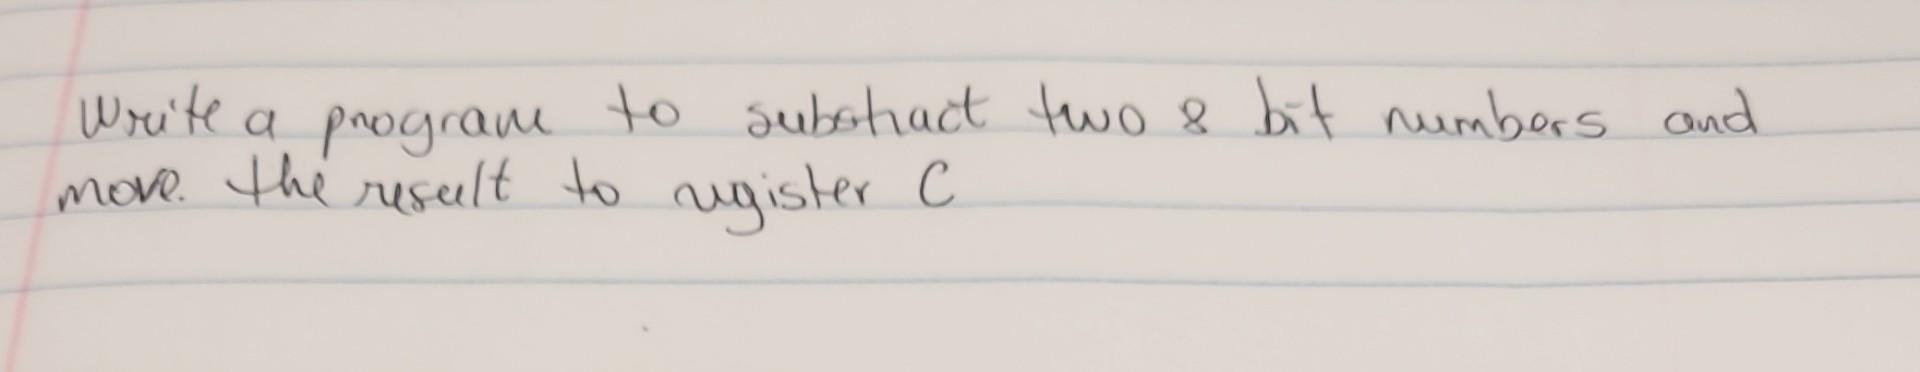 Write a program to substract two 8 bit numbers and
move. the result to register C